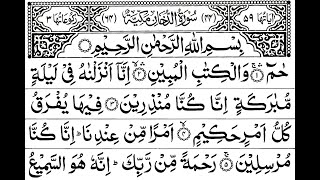 اٰيَاتُهَا ٥٩ (٤٤) سُوْرَةُ الدُّخَانِ مَكِّيَّةٌ (٦٤) رُكُوْعَاتُهَا ٣
بِسْمِ اللّٰهِ الرَّحْمٰنِ الرَّحِيْمِ
حٰمٓ ۝١ وَالْكِتٰبِ الْمُبِيْنِ ۝٢ اِنَّاۤ اَنْزَلْنٰهُ فِيْ لَيْلَةٍ
مُّبٰرَكَةٍ اِنَّا كُنَّا مُنْذِرِيْنَ ۝٣ فِيْهَا يُفْرَقُ
كُلُّ اَمْرٍ حَكِيْمٍ ۝٤ اَمْرًا مِّنْ عِنْدِنَا ؕ اِنَّا كُنَّا
مُرْسِلِيْنَ ۝٥ رَحْمَةً مِّنْ رَّبِّكَ ؕ اِنَّهٗ هُوَ السَّمِيْعُ